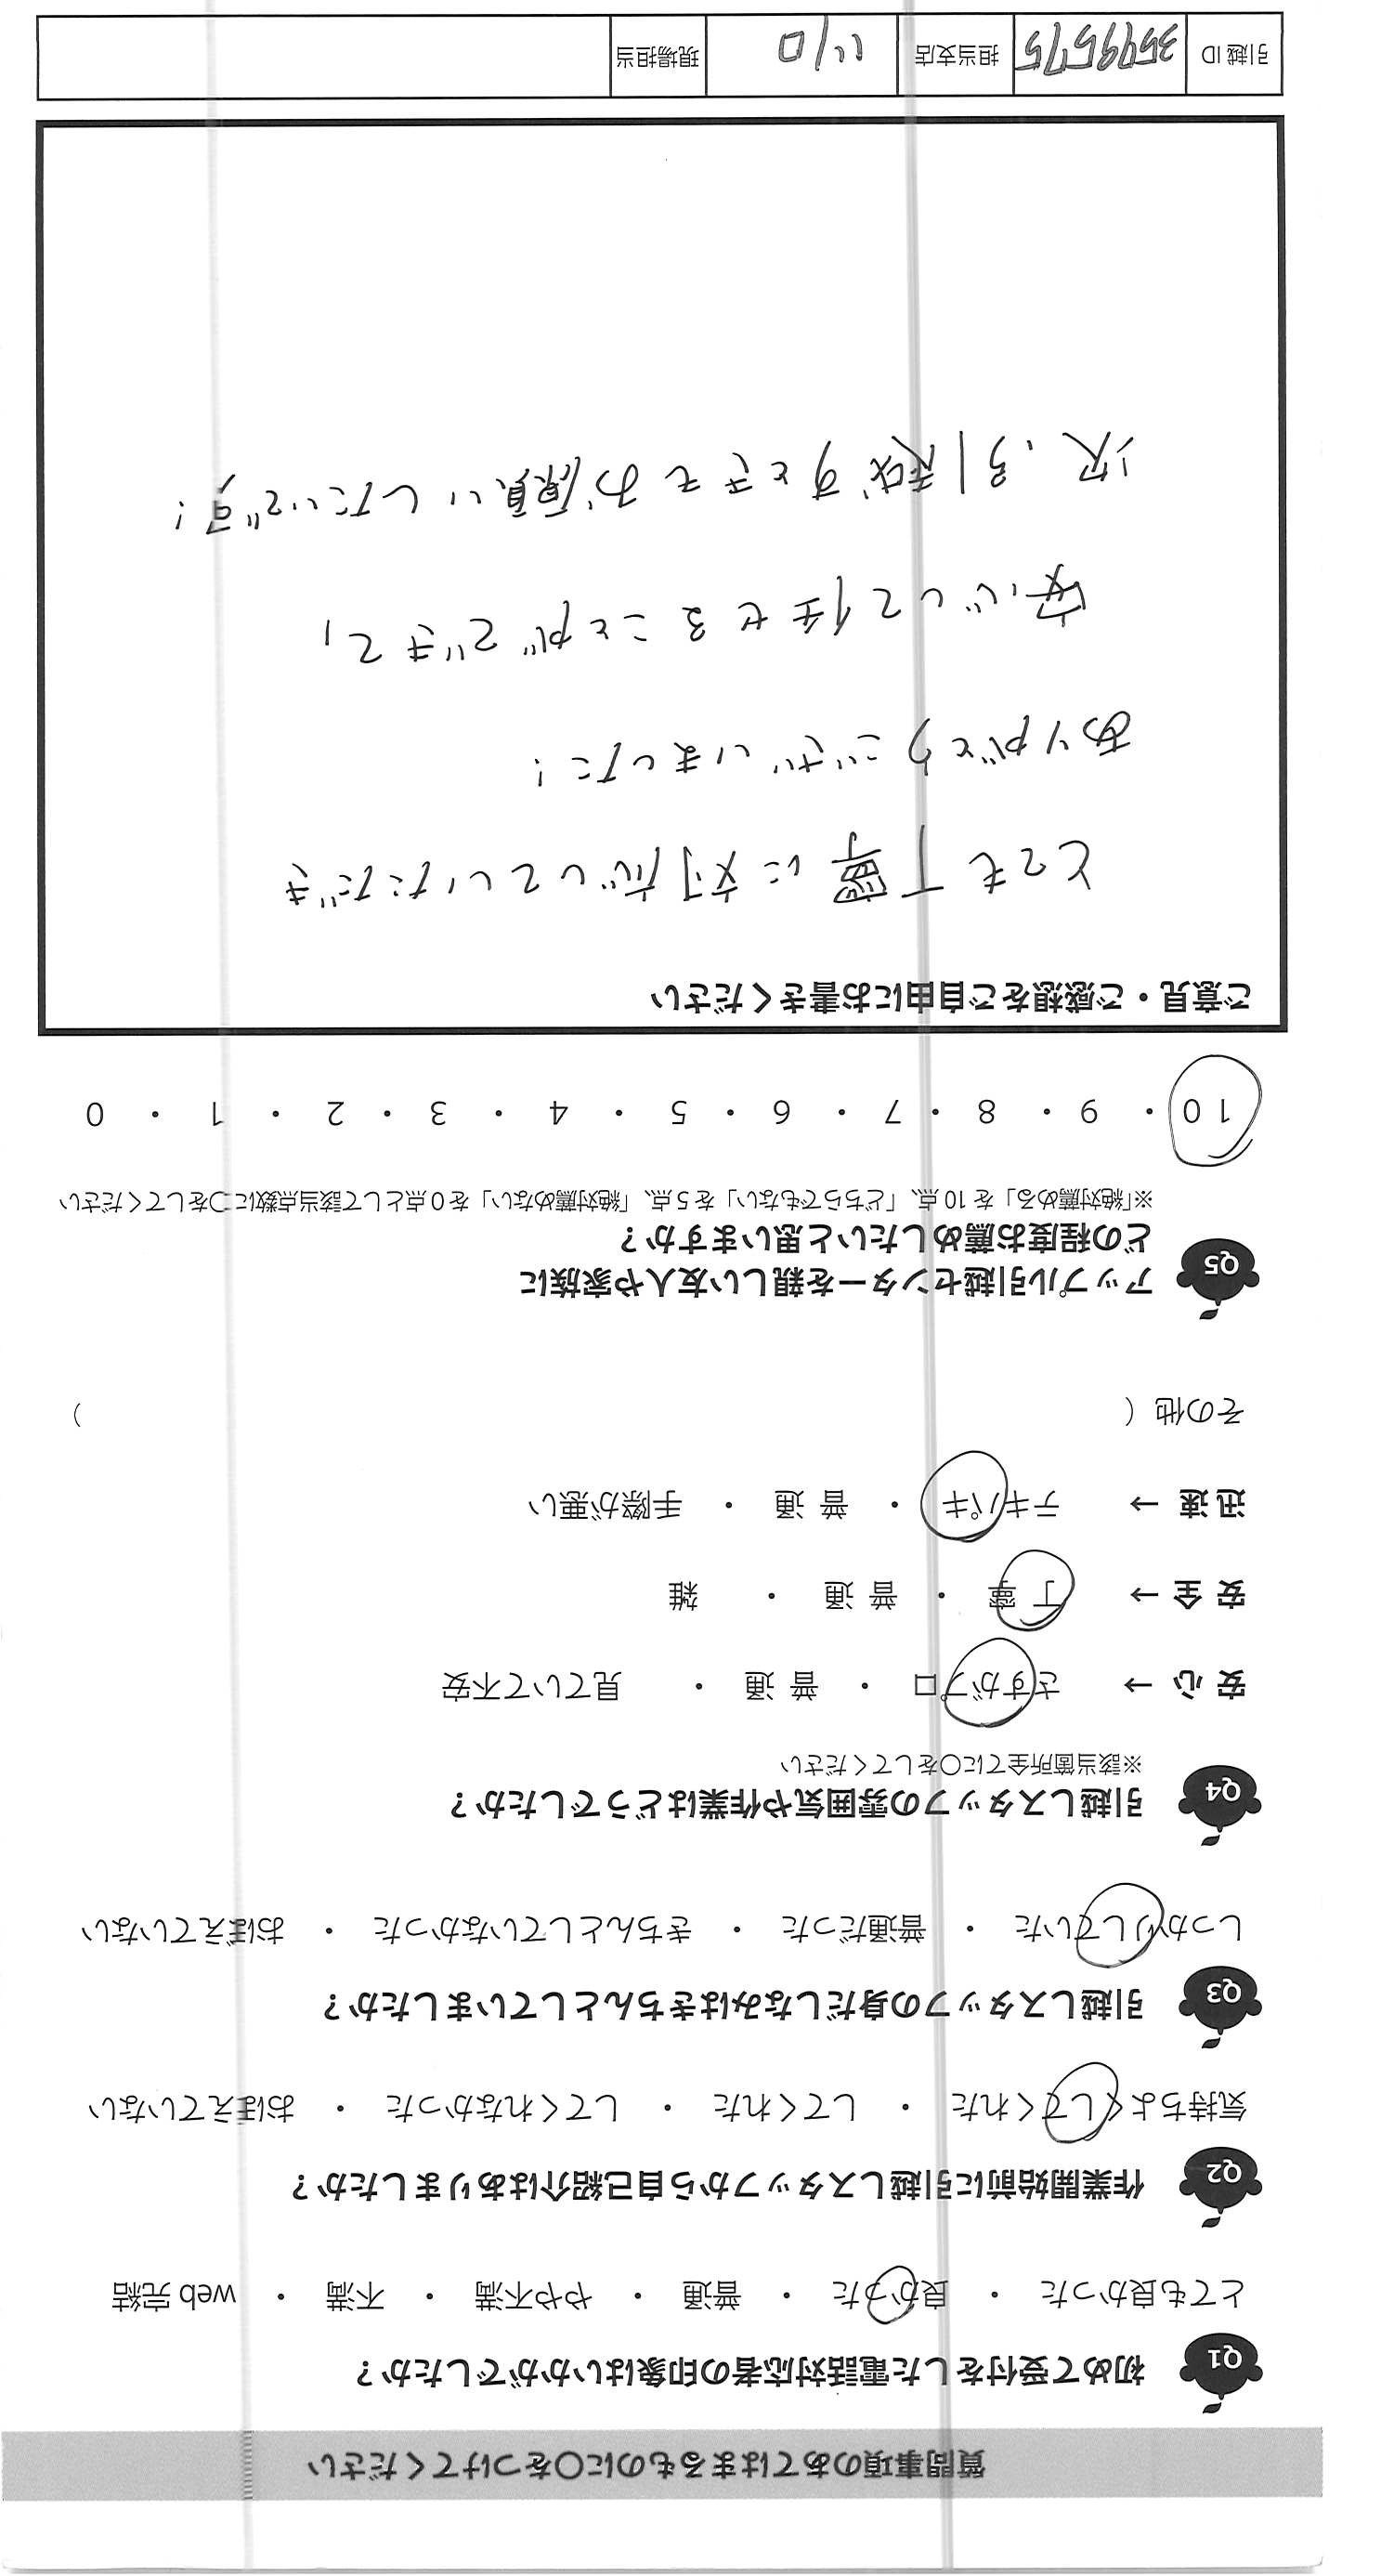 質問事項のあてはまるものに〇をつけてください
Q1 初めて受付をした電話対応者の印象はいかがでしたか？
とても良かった ・ 良かった ・ 普通 ・ やや不満 ・ 不満 ・ web 完結
Q2 作業開始前に引越しスタッフから自己紹介はありましたか？
気持ちよくしてくれた ・ してくれた ・ してくれなかった ・ おぼえていない
Q3 引越しスタッフの身だしなみはきちんとしていましたか？
しっかりしていた ・ 普通だった ・ きちんとしていなかった ・ おぼえていない
Q4 引越しスタッフの雰囲気や作業はどうでしたか？
※該当箇所全てに〇をしてください
安 心 → さすがプロ ・ 普 通 ・ 見ていて不安
安 全 → 丁 寧 ・ 普 通 ・ 雑
迅 速 → テキパキ ・ 普 通 ・ 手際が悪い
その他（ ）
Q5 アップル引越センターを親しい友人や家族に
どの程度お薦めしたいと思いますか？
※「絶対薦める」を 10 点、「どちらでもない」を 5 点、「絶対薦めない」を 0 点として該当点数に〇をしてください
10 ・ 9 ・ 8 ・ 7 ・ 6 ・ 5 ・ 4 ・ 3 ・ 2 ・ 1 ・ 0
ご意見・ご感想をご自由にお書きください
とても丁寧に対応していただき
ありがとうございました！
安心して任せることができて、
次、引越すときもお願いしたいです！
引越 ID 3549575 担当支店 川口 現場担当